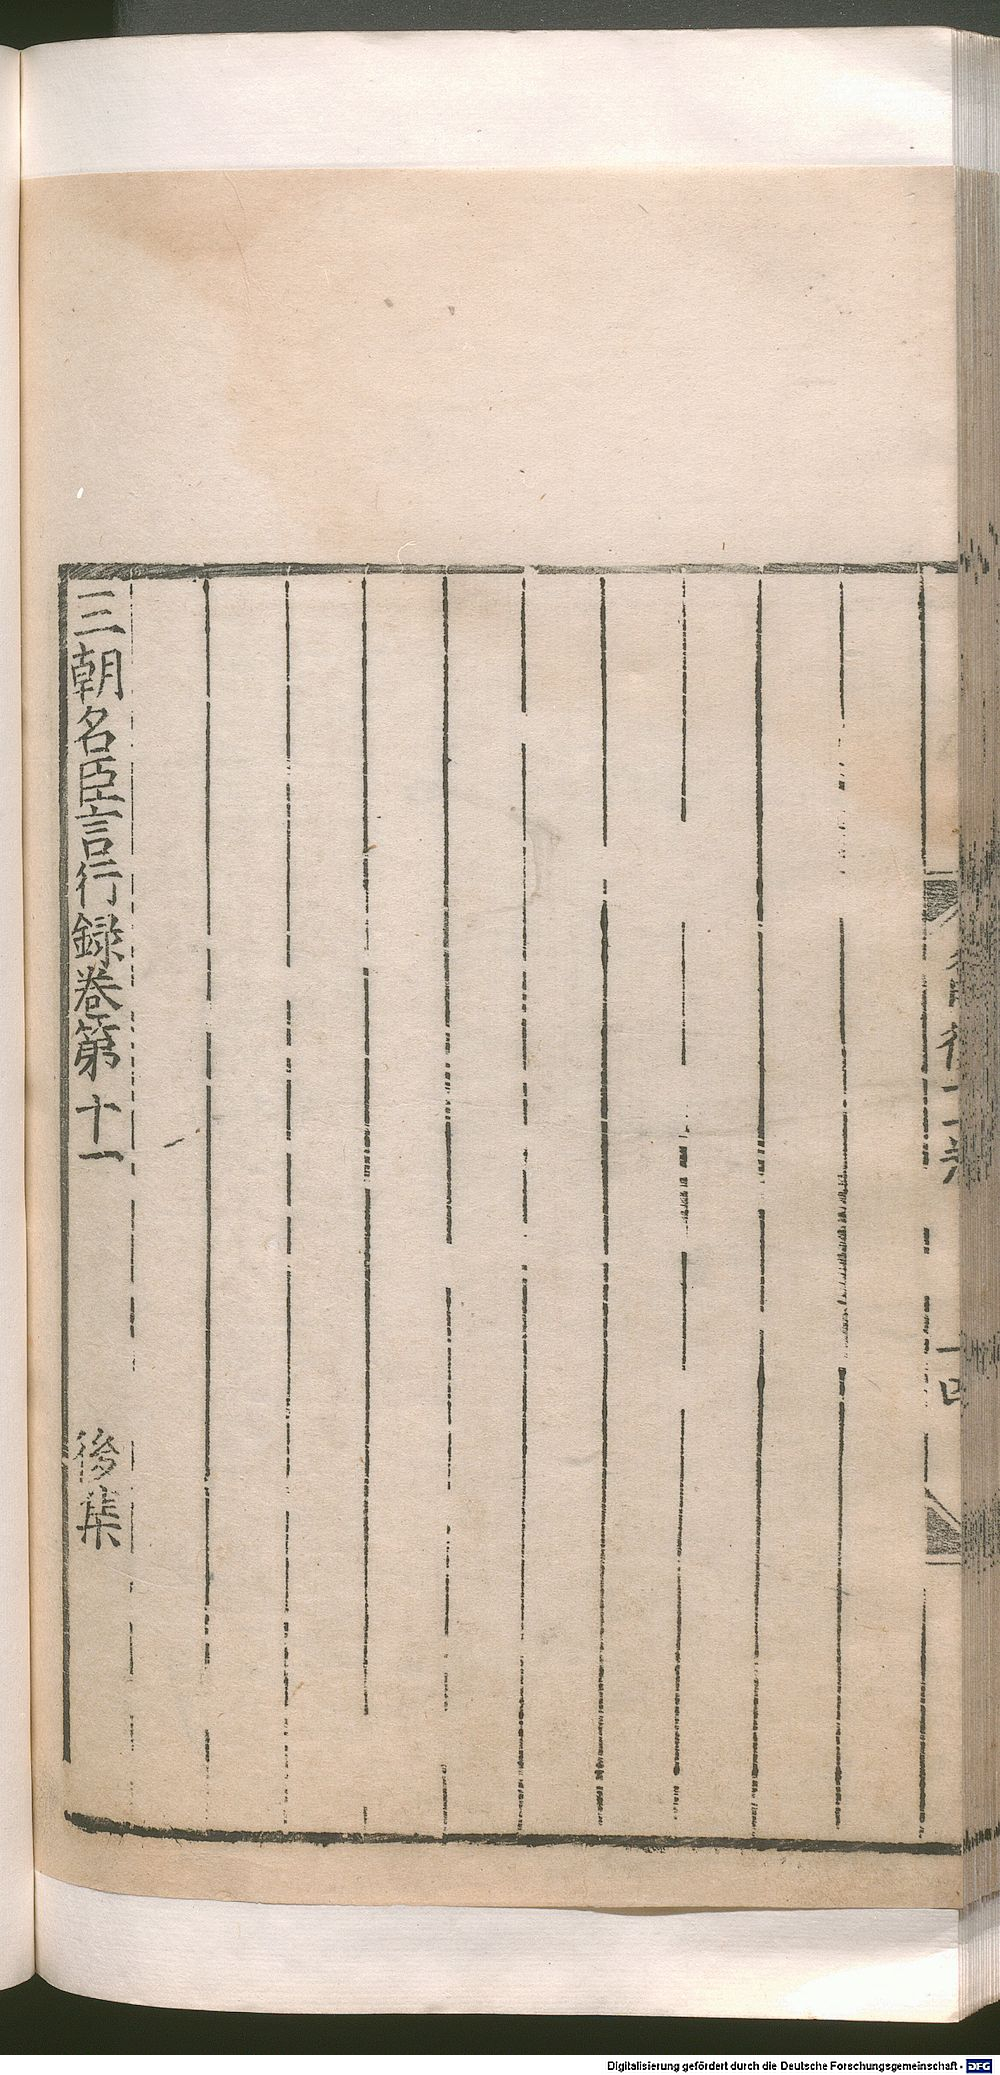 三朝名臣言行録卷第十一 後集
Digitalisierung gefördert durch die Deutsche Forschungsgemeinschaft - DFG